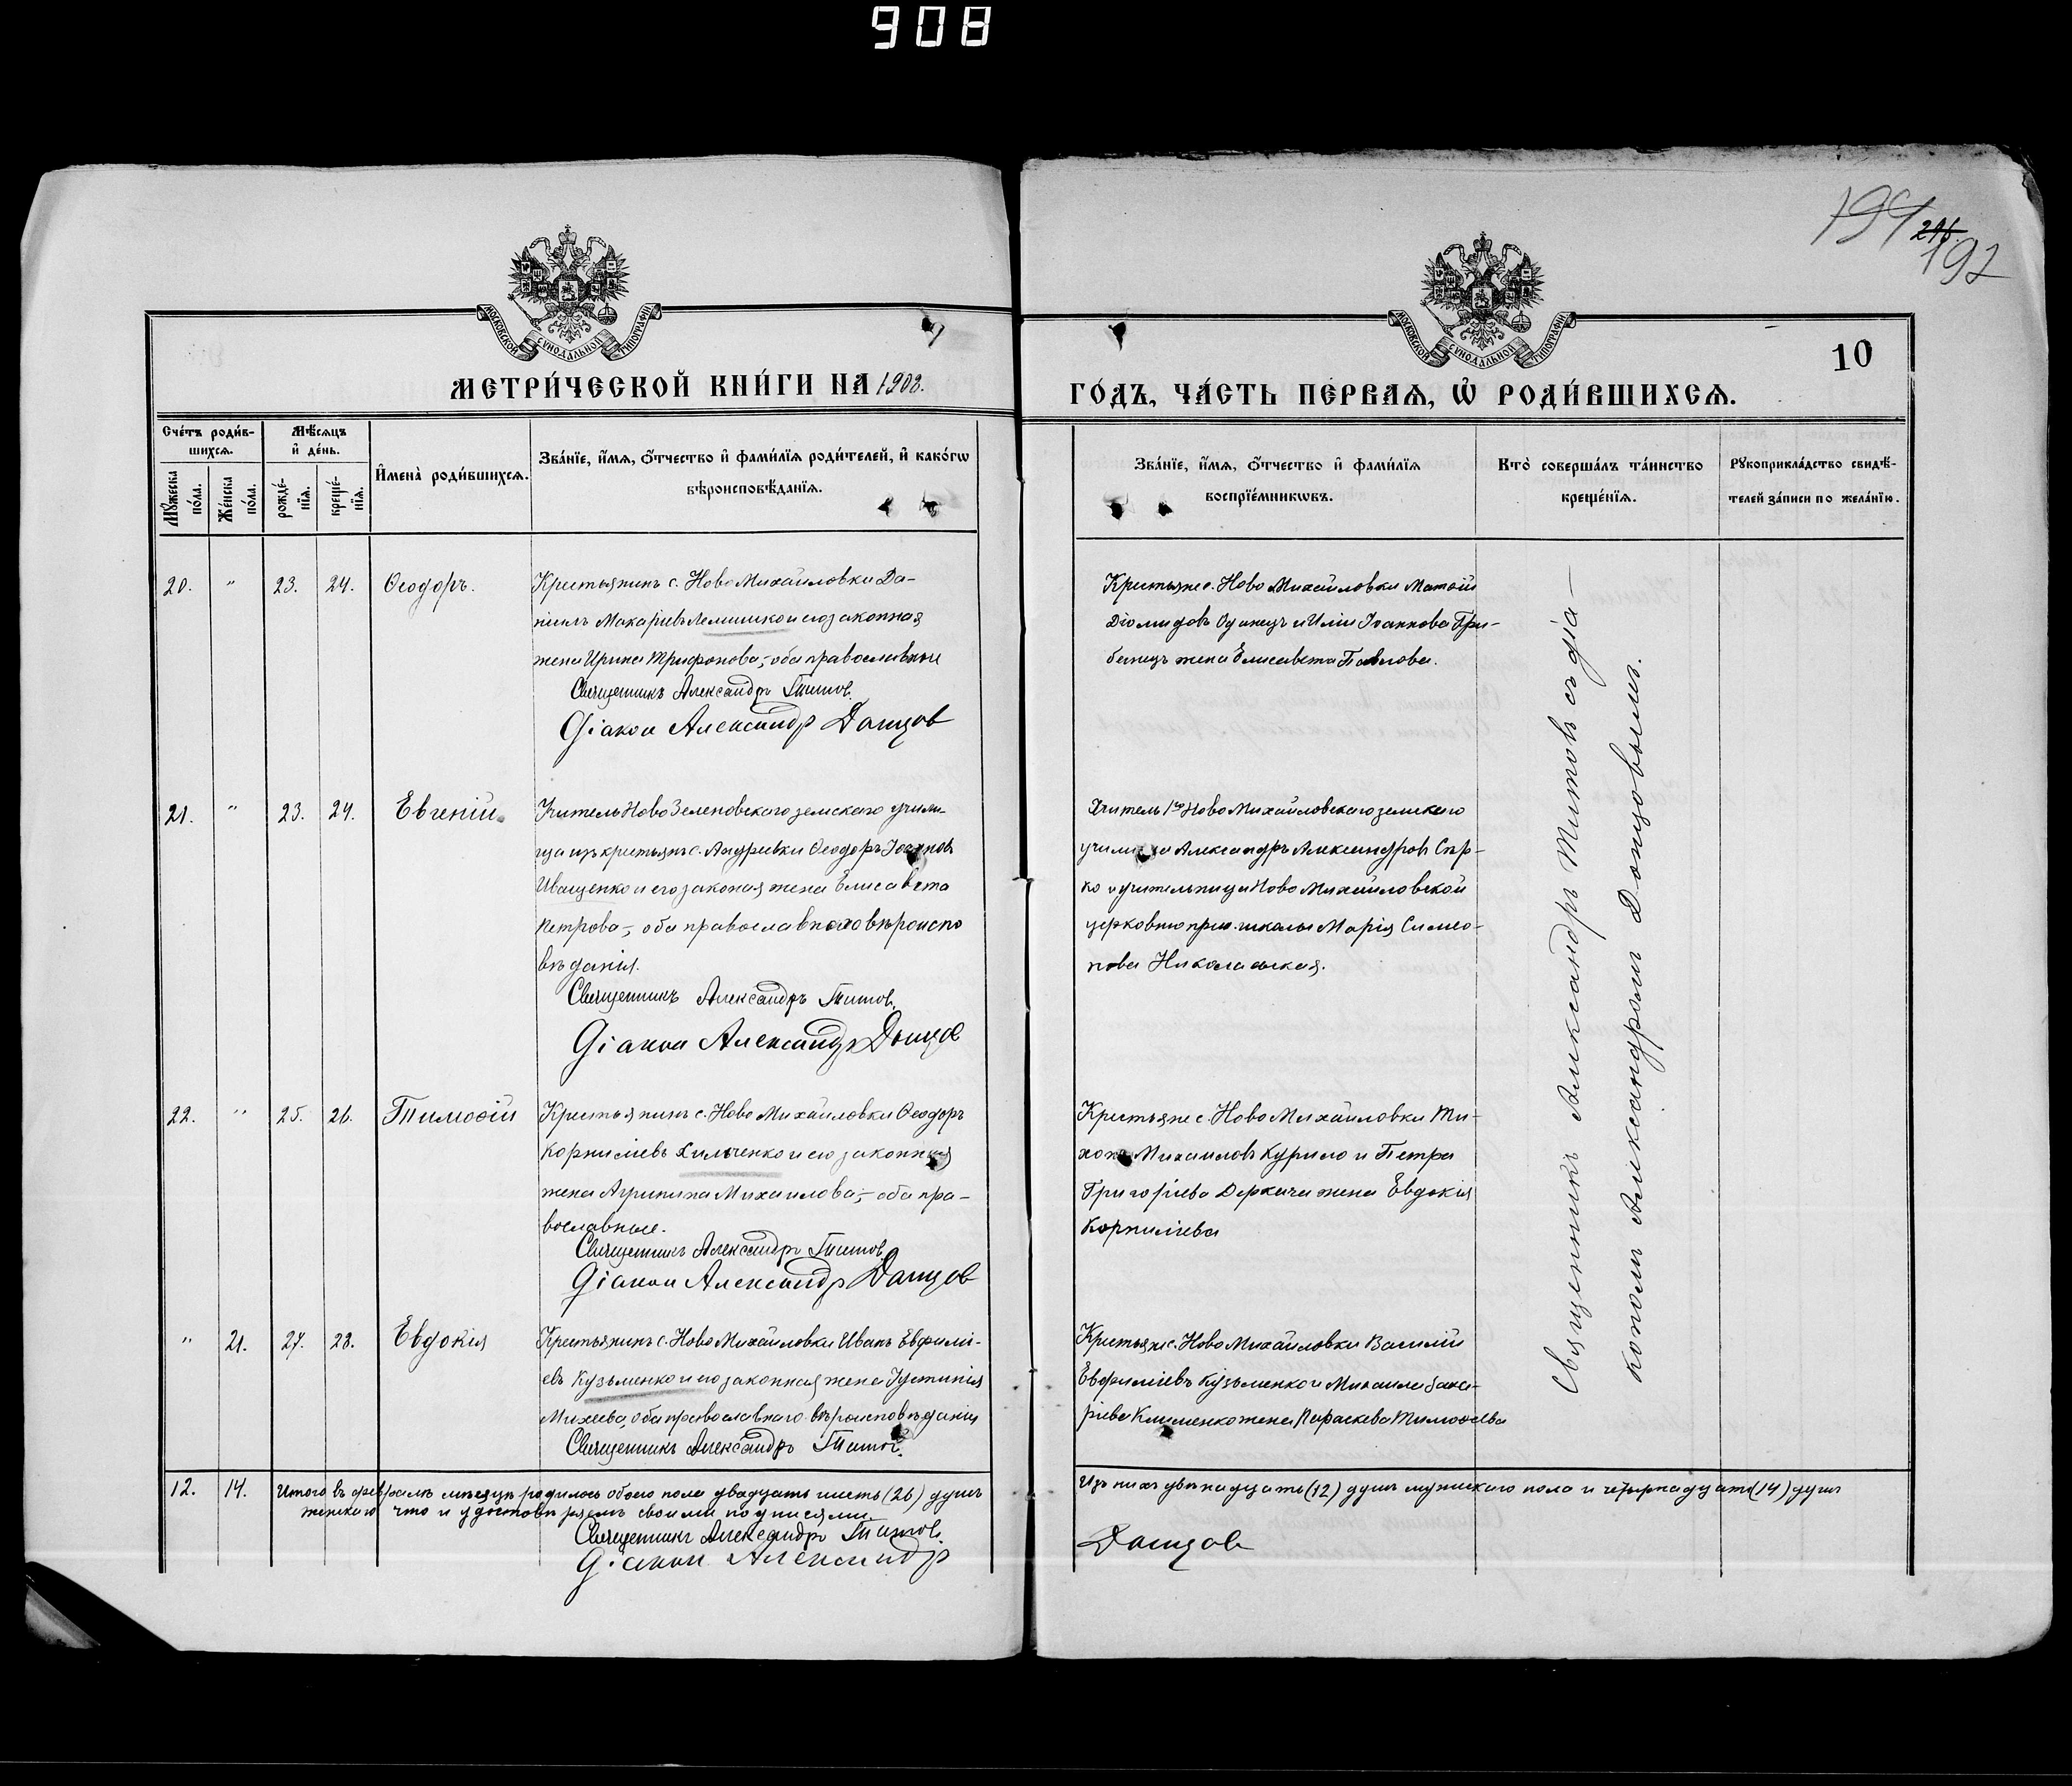 908
194 216 192
МОСКОВСКОЙ СУНОДАЛЬНОЙ ТИПОГРАФІИ
МОСКОВСКОЙ СУНОДАЛЬНОЙ ТИПОГРАФІИ
10
МЕТРИ́ЧЕСКОЙ КНИ́ГИ НА 1908.
ГО́ДЪ, ЧА́СТЬ ПЕ́РВАѦ, Ѡ҆ РОДИ́ВШИХСѦ.
Сче́тъ роди́в-
шихсѧ.
Мѣ́сѧцъ
и҆ де́нь.
Мꙋ́жеска
по́ла.
Же́нска
по́ла.
рожде́-
нїѧ.
креще́-
нїѧ.
И҆мена̀ роди́вшихсѧ.
Зва́нїе, и҆́мѧ, ѻ҆́тчество и҆ фами́лїѧ роди́телей, и҆ како́гѡ
вѣроисповѣ́данїѧ.
Зва́нїе, и҆́мѧ, ѻ҆́тчество и҆ фами́лїѧ
воспрїе́мникѡвъ.
Кто̀ соверша́лъ та́инство
креще́нїѧ.
Рꙋкоприкла́дство свидѣ́-
телей за́писи по жела́нїю.
20. " 23. 24. Ѳеодоръ.
Крестьянинъ с. Ново Михайловки Да-
ніилъ Макаріевъ Лемишко и его законная
жена Ирина Трифонова, - оба православные
Священникъ Александръ Титов.
Діакон Александр Донцов
Крестьяне с. Ново Михайловки Матѳій
Діомидовъ Одинецъ и Иліи Іоаннова Гри-
бенецъ жена Елисавета Павлова.
21. " 23. 24. Евгеній.
Учитель Ново Зеленовскаго земскаго учили-
ща изъ крестьянъ с. Андреевки Ѳеодоръ Іоаннов
Иващенко и его законая жена Елисавета
Петрова -, оба православнаго вѣроиспо
вѣданія.
Священникъ Александръ Титов.
Діакон Александр Донцов
Учитель 1го Ново Михайловскаго земскаго
училища Александръ Александровъ
ко и учительница Ново Михайловской
церковно прих. школы Марія Симео-
нова Николаевская.
22. " 25. 26. Тимоѳій
Крестьянинъ с. Ново Михайловки Ѳеодоръ
Корниліевъ Хильченко и его законная
жена Агрипина Михаилова, - оба пра-
вославные.
Священникъ Александръ Титов.
Діакон Александр Донцов
Крестьяне с. Ново Михайловки Ти-
хонъ Михаиловъ Курило и Петра
Григоріева Деркача жена Евдокія
Корниліева
" 21. 27. 28. Евдокія
Крестьянинъ с. Ново Михайловки Иванъ Евфимі-
евъ Кузьменко и его законная жена Іустинія
Михеева, оба православнаго вѣроисповѣданія
Священникъ Александръ Титов.
Крестьяне с. Ново Михайловки Василій
Евфиміевъ Кузьменко и Михаила Заха-
ріева Клименко жена Параскева Тимоѳеева
Священникъ Александръ Титовъ съ діа-
кономъ Александромъ Донцовымъ.
12. 14. Итого въ февралѣ мѣсяцѣ родилось обоего пола двадцать шесть (26) душъ
Изъ нихъ двѣнадцать (12) душъ мужескаго пола и четырнадцать (14) душъ
женскаго что и удостовѣряемъ своими подписями.
Священникъ Александръ Титов.
Діакон Александр
Донцов